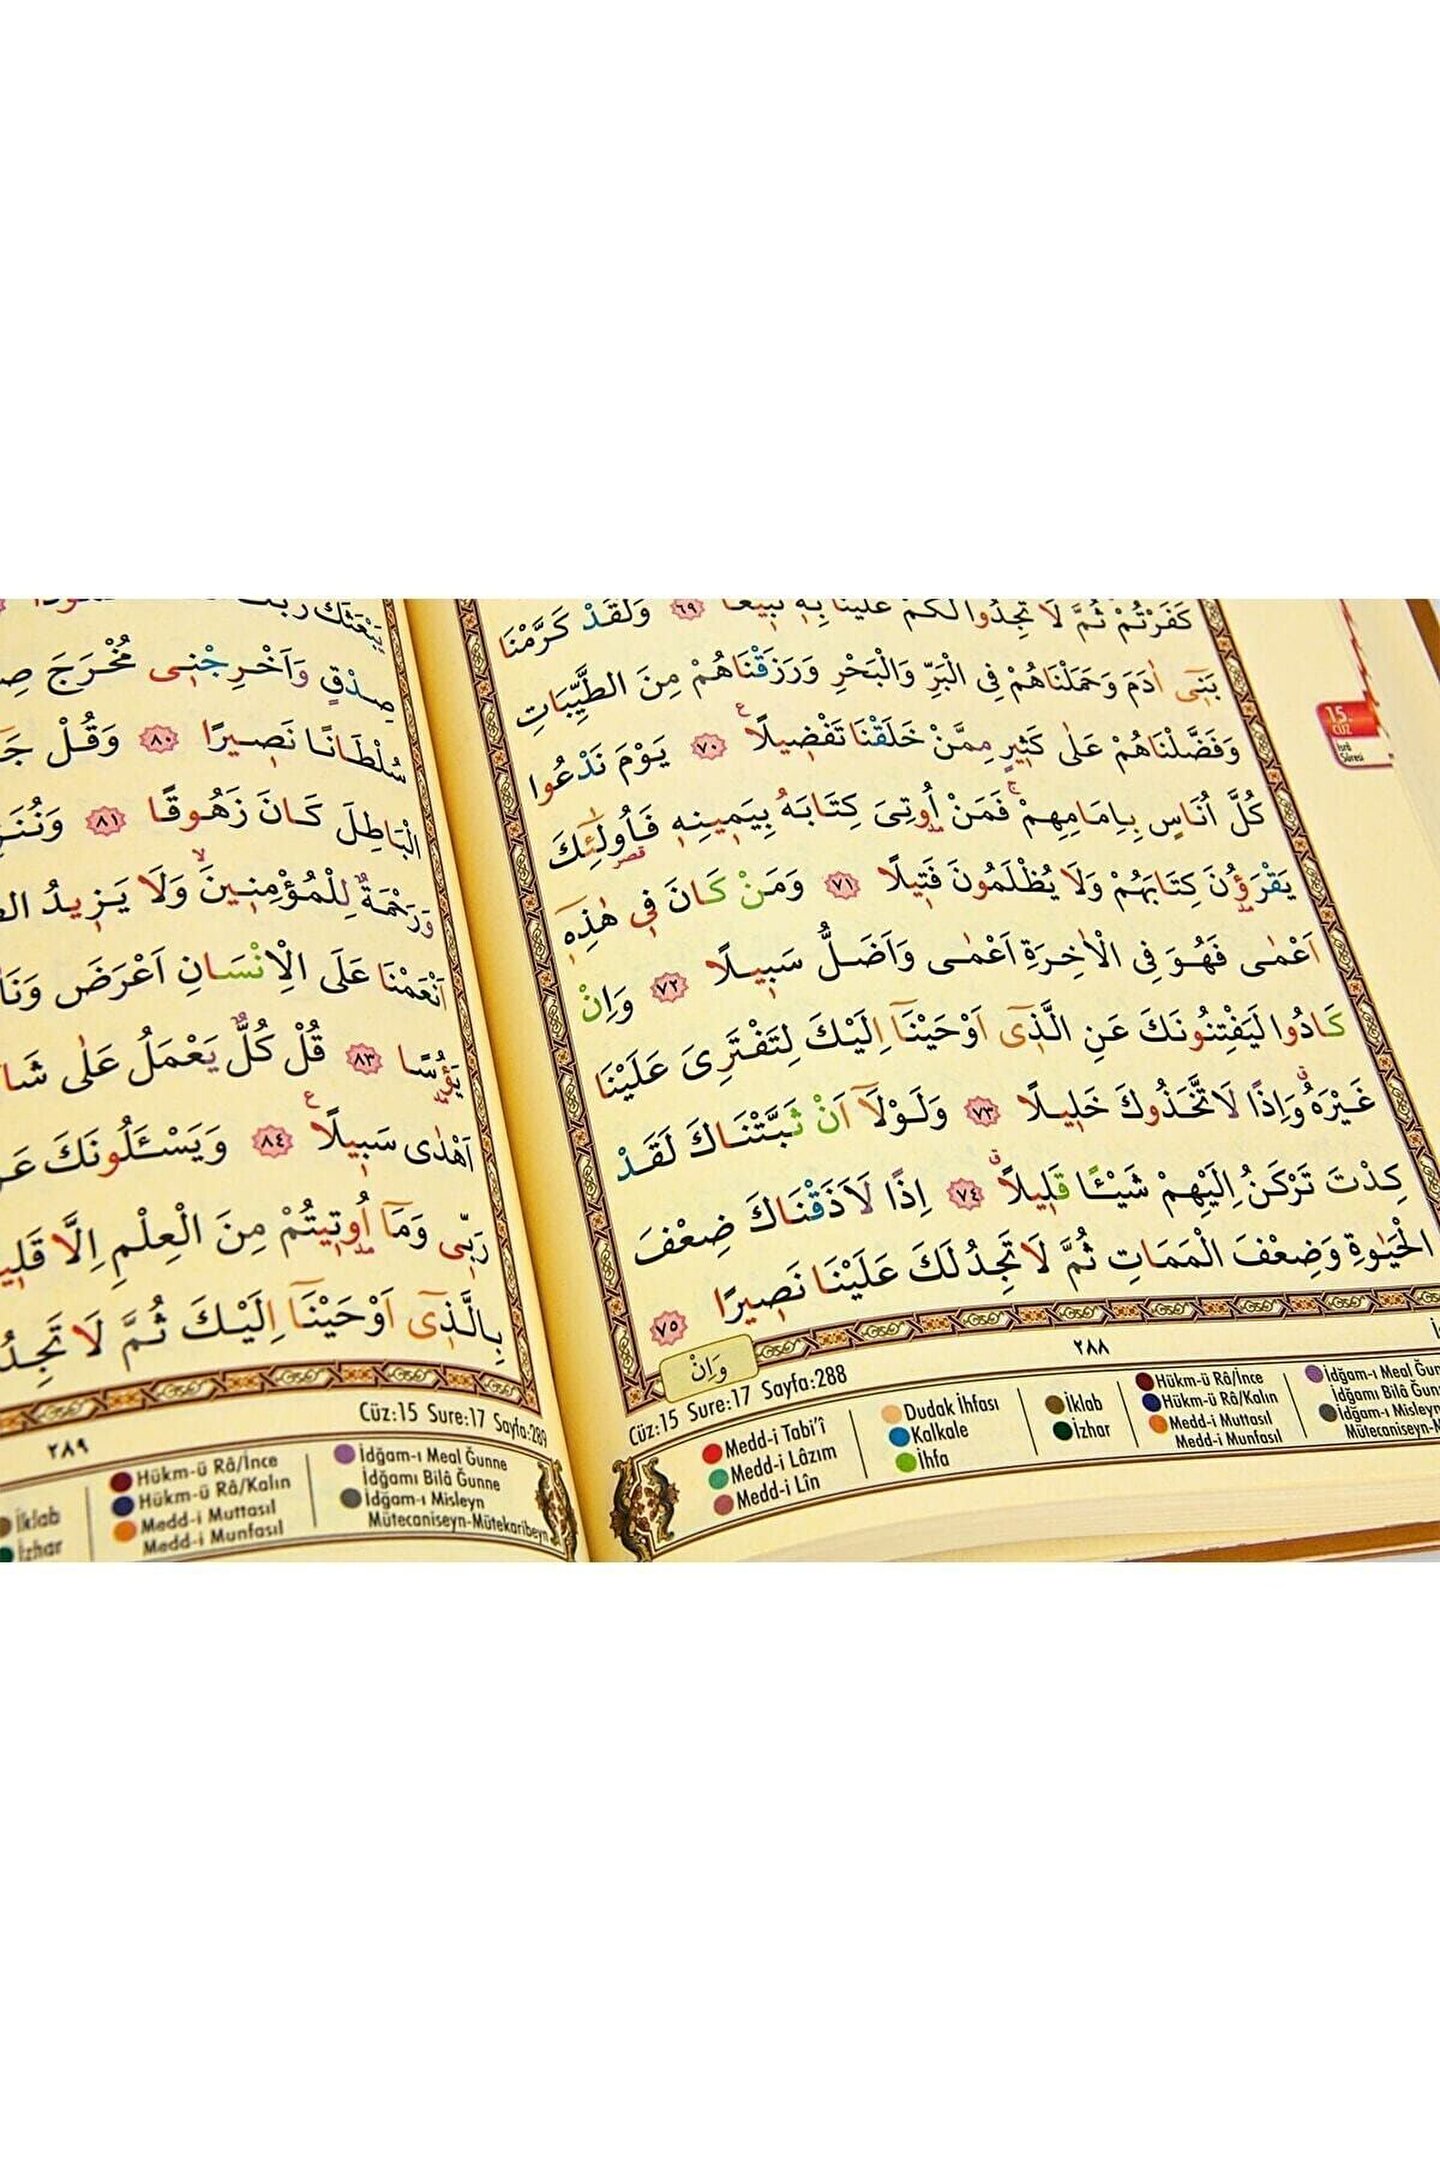 كَفَرْتُمْ ثُمَّ لَا تَجِدُوا لَكُمْ عَلَيْنَا بِهٖ تَبٖيعًا ﴿٦٩﴾ وَلَقَدْ كَرَّمْنَا
بَنٖٓى اٰدَمَ وَحَمَلْنَاهُمْ فِى الْبَرِّ وَالْبَحْرِ وَرَزَقْنَاهُمْ مِنَ الطَّيِّبَاتِ
وَفَضَّلْنَاهُمْ عَلٰى كَثٖيرٍ مِمَّنْ خَلَقْنَا تَفْضٖيلًا ع ﴿٧٠﴾ يَوْمَ نَدْعُوا
كُلَّ اُنَاسٍ بِاِمَامِهِمْ ج فَمَنْ اُو۫تِىَ كِتَابَهُ بِيَمٖينِهٖ فَاُو۬لٰٓئِكَ
يَقْرَؤُ۫نَ كِتَابَهُمْ وَلَا يُظْلَمُونَ فَتٖيلًا ﴿٧١﴾ وَمَنْ كَانَ فٖى هٰذِهٖٓ
اَعْمٰى فَهُوَ فِى الْاٰخِرَةِ اَعْمٰى وَاَضَلُّ سَبٖيلًا ﴿٧٢﴾ وَاِنْ
كَادُوا لَيَفْتِنُونَكَ عَنِ الَّذٖٓى اَوْحَيْنَٓا اِلَيْكَ لِتَفْتَرِىَ عَلَيْنَا
غَيْرَهُ ق وَاِذًا لَاتَّخَذُوكَ خَلٖيلًا ﴿٧٣﴾ وَلَوْلَٓا اَنْ ثَبَّتْنَاكَ لَقَدْ
كِدْتَ تَرْكَنُ اِلَيْهِمْ شَيْـًٔا قَلٖيلًا ق ﴿٧٤﴾ اِذًا لَاَذَقْنَاكَ ضِعْفَ
الْحَيٰوةِ وَضِعْفَ الْمَمَاتِ ثُمَّ لَا تَجِدُ لَكَ عَلَيْنَا نَصٖيرًا ﴿٧٥﴾
وَاِنْ
٢٨٨
Cüz:15 Sure:17 Sayfa:288
Medd-i Tabi'î
Medd-i Lâzım
Medd-i Lîn
Dudak İhfası
Kalkale
İhfa
İklab
İzhar
Hükm-ü Râ/İnce
Hükm-ü Râ/Kalın
Medd-i Muttasıl
Medd-i Munfasıl
İdğam-ı Meal
İdğamı Bilâ
İdğam-ı Misleyn
15.
CÜZ
İsrâ
Sûresi
يَبْعَثَكَ رَبُّكَ
صِدْقٍ وَاَخْرِجْنٖى مُخْرَجَ
سُلْطَانًا نَصٖيرًا ﴿٨٠﴾ وَقُلْ
الْبَاطِلَ كَانَ زَهُوقًا ﴿٨١﴾
وَرَحْمَةٌ لِلْمُؤْمِنٖينَ لا وَلَا يَزٖيدُ
اَنْعَمْنَا عَلَى الْاِنْسَانِ اَعْرَضَ
يَؤُ۫سًا ﴿٨٣﴾ قُلْ كُلٌّ يَعْمَلُ عَلٰى
اَهْدٰى سَبٖيلًا ع ﴿٨٤﴾ وَيَسْـَٔلُونَكَ
رَبّٖى وَمَٓا اُو۫تٖيتُمْ مِنَ الْعِلْمِ اِلَّا
بِالَّذٖٓى اَوْحَيْنَٓا اِلَيْكَ ثُمَّ لَا
Cüz:15 Sure:17 Sayfa:289
٢٨٩
İklab
İzhar
Hükm-ü Râ/İnce
Hükm-ü Râ/Kalın
Medd-i Muttasıl
Medd-i Munfasıl
İdğam-ı Meal Ğunne
İdğamı Bilâ Ğunne
İdğam-ı Misleyn
Mütecaniseyn-Mütekaribeyn